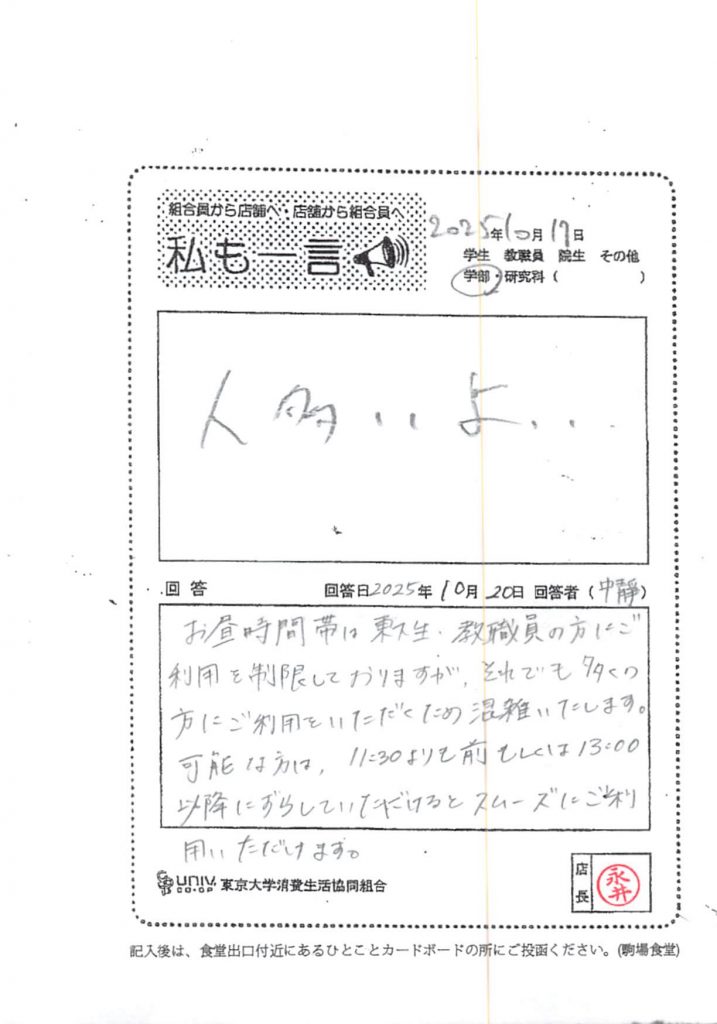 組合員から店舗へ・店舗から組合員へ
私も一言
2025年10月17日
学生 教職員 院生 その他
学部・研究科（ ）
人多いよ...
回答 回答日2025年10月20日 回答者（中靜）
お昼時間帯は東大生・教職員の方にご
利用を制限しておりますが、それでも多くの
方にご利用をいただくため混雑いたします。
可能な方は、11:30よりも前もしくは13:00
以降にずらしていただけるとスムーズにご利
用いただけます。
UNIV. CO-OP 東京大学消費生活協同組合
店長
永井
記入後は、食堂出口付近にあるひとことカードボードの所にご投函ください。(駒場食堂)